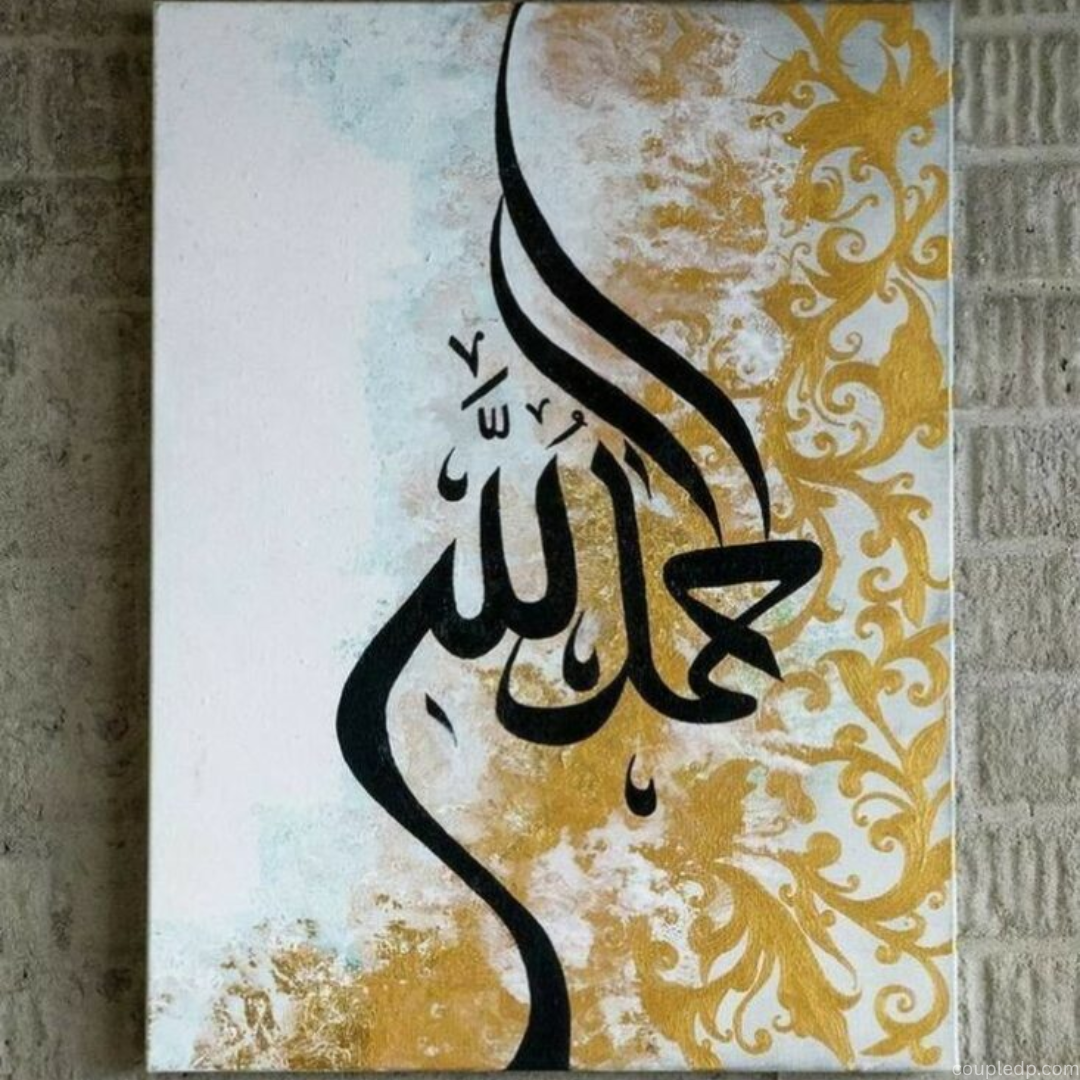 الحمد لله
coupledp.com